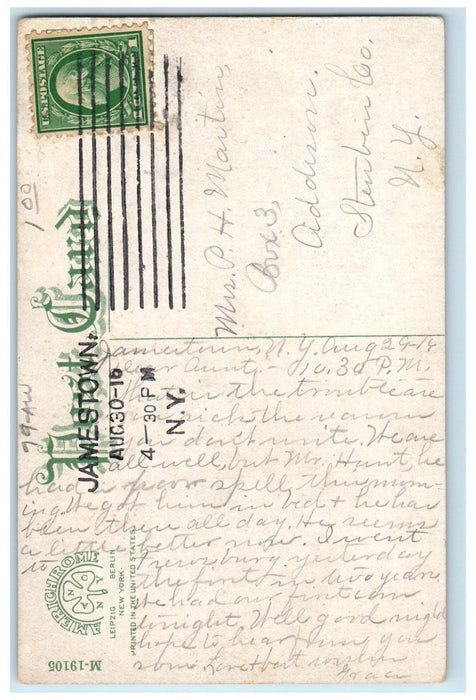 U.S. POSTAGE
1 CENT 1
1 00
Post Card
JAMESTOWN,
AUG 30 - 16
4 - 30 PM
N.Y.
Mrs. P. H. Martin,
Box 3,
Addison.
Steuben Co.
N. Y.
Jamestown, N. Y. Aug 29-16
Dear Aunty - 10,30 P.M.
What is the trouble are
you sick the reason
you don't write. We are
all well, but Mr. Hunt, he
had a poor spell this morn-
ing. We got him in bid + he has
been there all day. He seems
a little better now. I went
to Frewsburg yesterday
the first in two years
We had our first corn
tonight. Well good night
hope to hear from you
soon. Love + best wishes
Grace
AMERICHROME
LEIPZIG BERLIN
NEW YORK
PRINTED IN THE UNITED STATES
M-19105